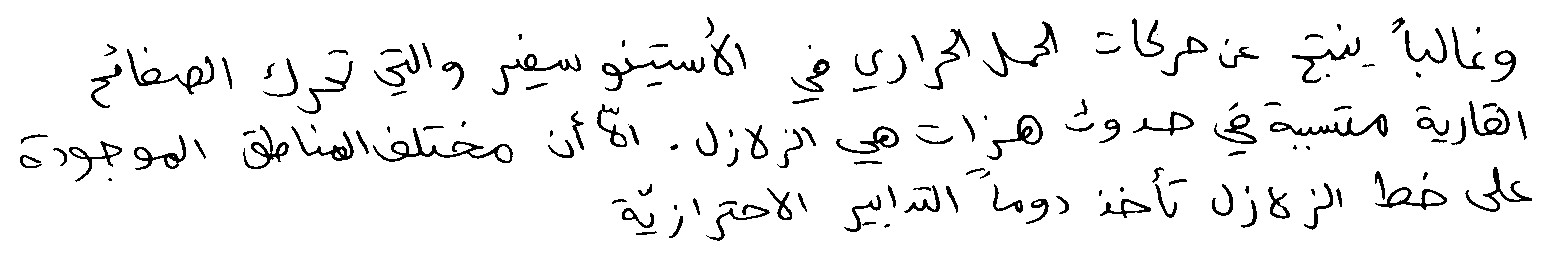 وغالباً ينتج عن حركات الحمل الحراري في الأستينو سفير والتي تحرك الصفائح
القارية متسببة في حدوث هزات هي الزلازل. الاّ أن مختلف المناطق الموجودة
على خط الزلازل تأخذ دوماً التدابير الاحترازيّة